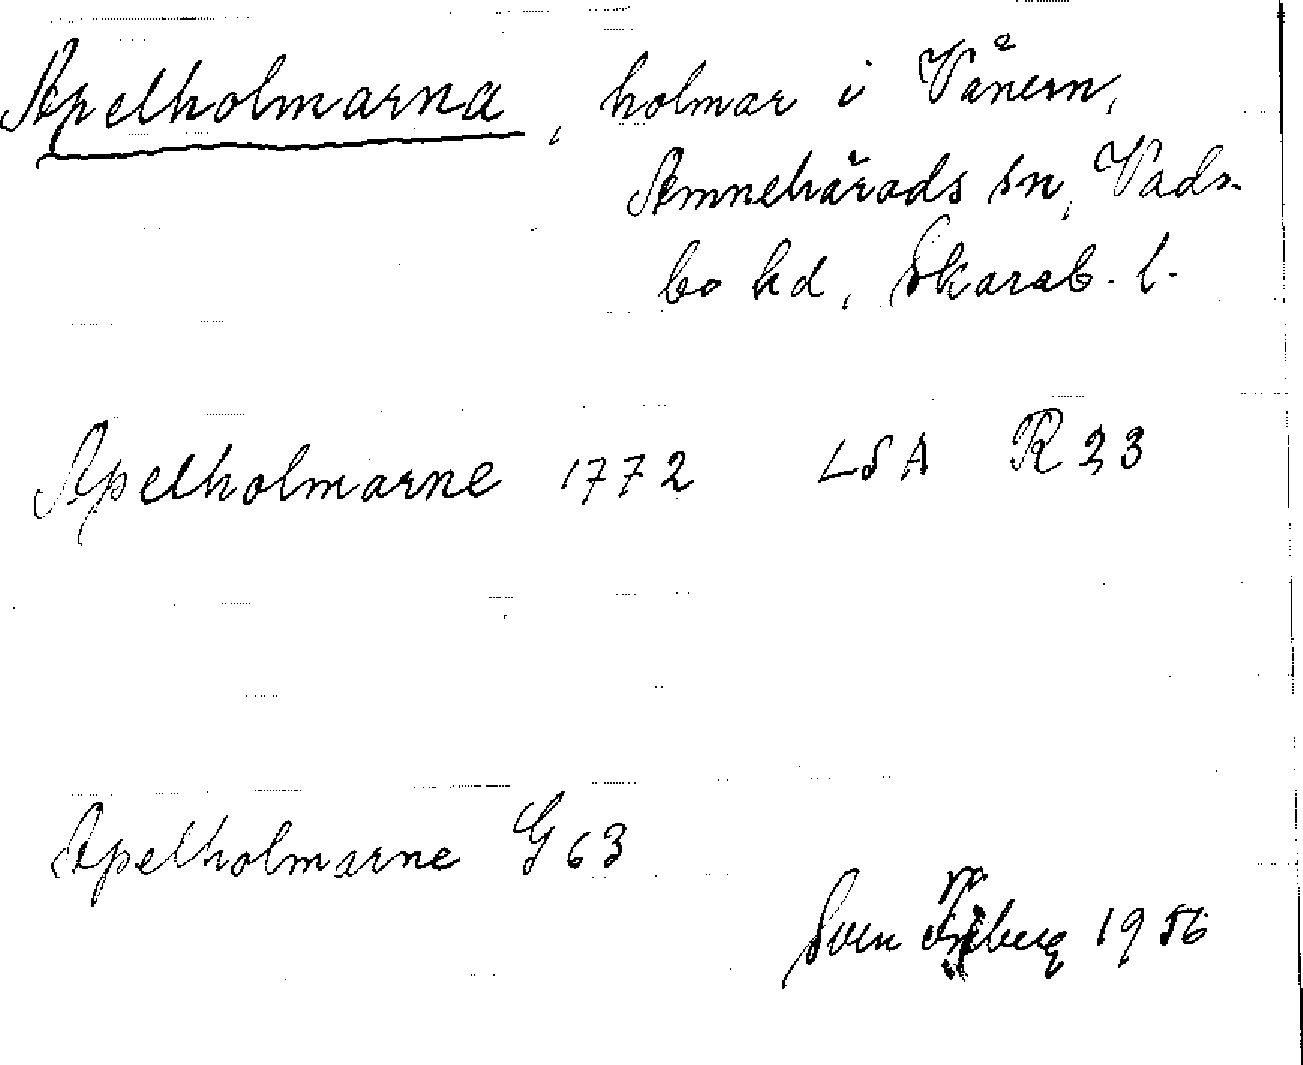 Apelholmarna, holmar i Vänern,
Amnehärads sn, Vads-
bo hd, Skarab. l.
Apelholmarne 1772 LSA R 23
Apelholmarne G 63
Sven 1956